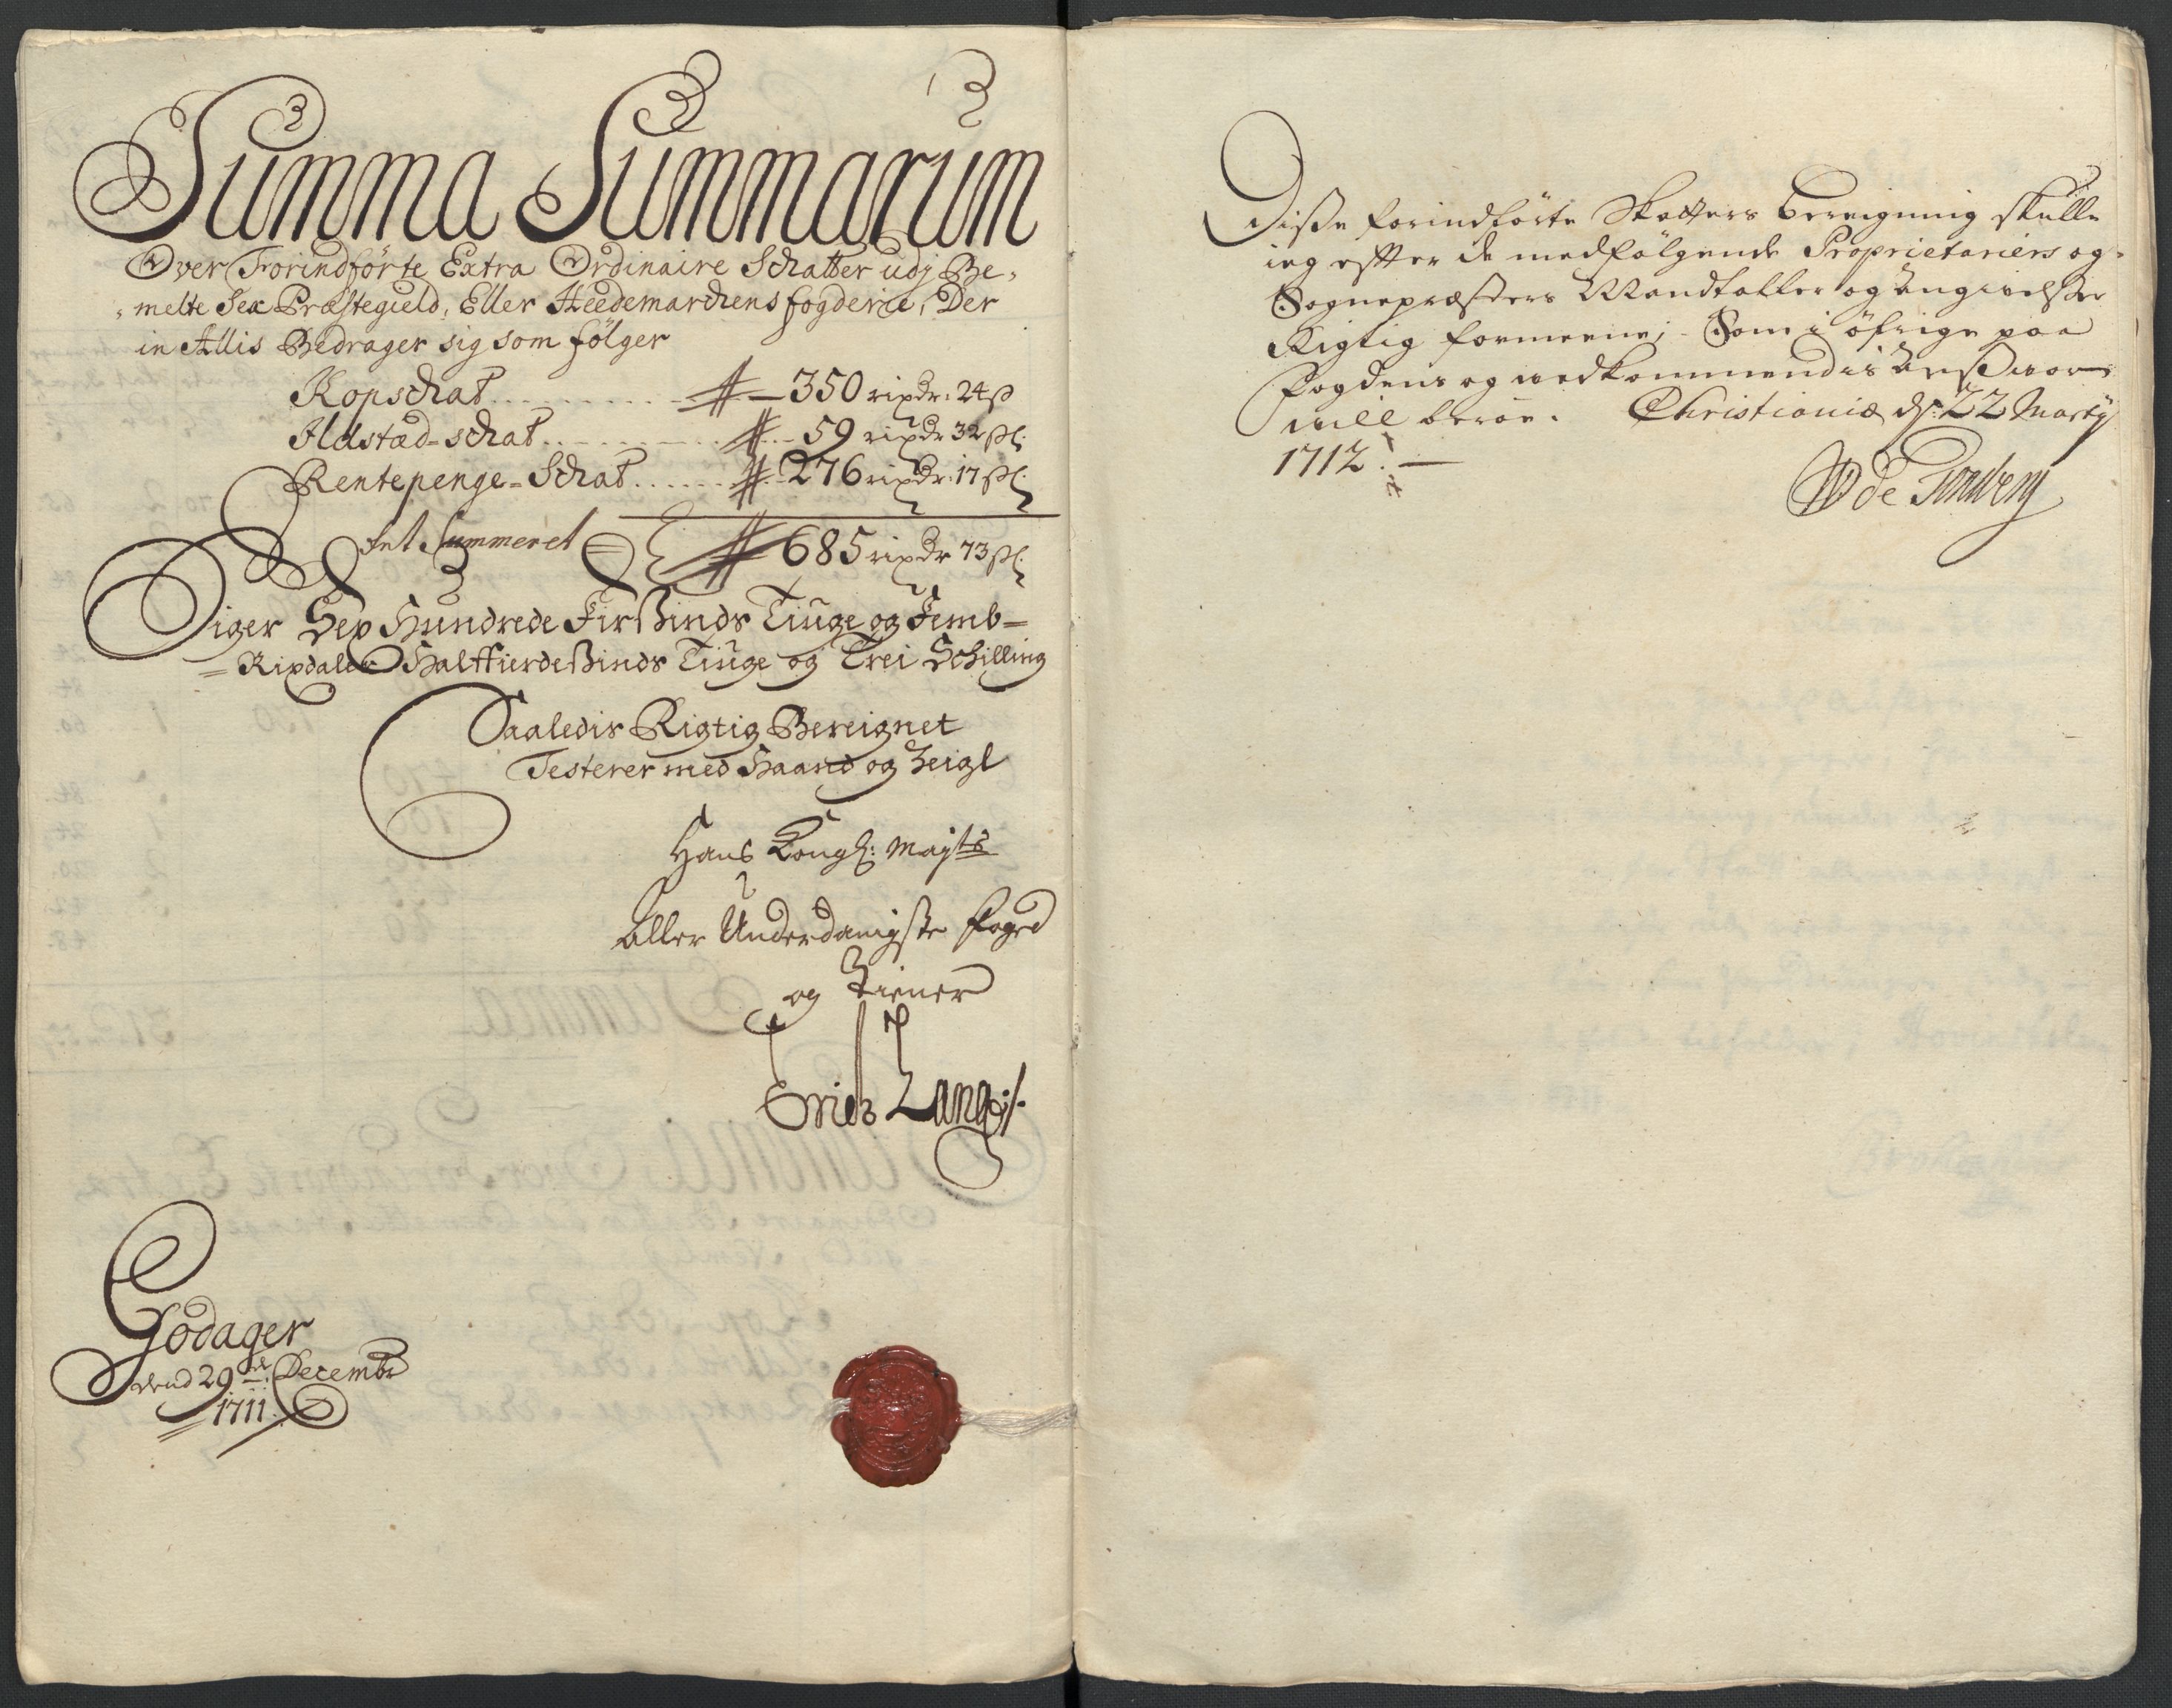 Summa Summarum
Over Forindførte Extra Ordinaire Schatter udj Be-
melte Sex Præstegield, Eller Heedemarchens fogderie, Der
in Allis Bedrager sig som følger
Kopschat 350 rixdr: 24 ß
Ildstæd-schat 59 rixdr 32 ßl:
Rentepenge-Schat 276 rixdr: 17 ßl:
Summeret 685 rixdr 73 ßl:
Siger Sex Hundrede Firßinds Tiuge og Femb=
=Rixdaler Halffierdeßinds Tiuge og Trei Schilling
Saaledis Rigtig Bereignet
Testerer med Haand og Zeigl
Hans Kongl: Mayts
aller Underdanigste foged
og Tiener
Erich Lang
Godager
dend 29de Decembr
1711.
Disse forindførte Skatters bereigning skulle
ieg efter de medfølgende Proprietariers og
Sognepræsters Mandtaller og angivelser
Rigtig formeene; Som i øfrige paa
fogdens og vedkommendis ansvar
vill beroe. Christiania d: 22 Martij
1712.